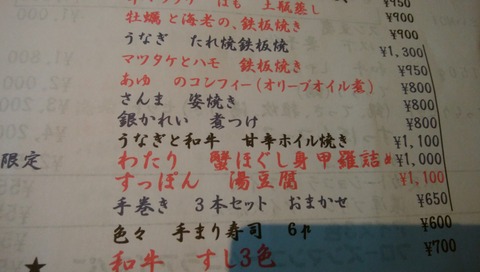 マツタケ はも 土瓶蒸し ¥950
牡蠣と海老の、鉄板焼き ¥900
うなぎ たれ焼鉄板焼 ¥1,300
マツタケとハモ 鉄板焼き ¥950
あゆ のコンフィー(オリーブオイル煮) ¥800
さんま 姿焼き ¥800
銀かれい 煮つけ ¥800
うなぎと和牛 甘辛ホイル焼き ¥1,100
限定 わたり 蟹ほぐし身甲羅詰め ¥1,000
すっぽん 湯豆腐 ¥1,100
手巻き 3本セット おまかせ ¥650
色々 手まり寿司 6ヶ ¥600
★ 和牛 すし3色 ¥700